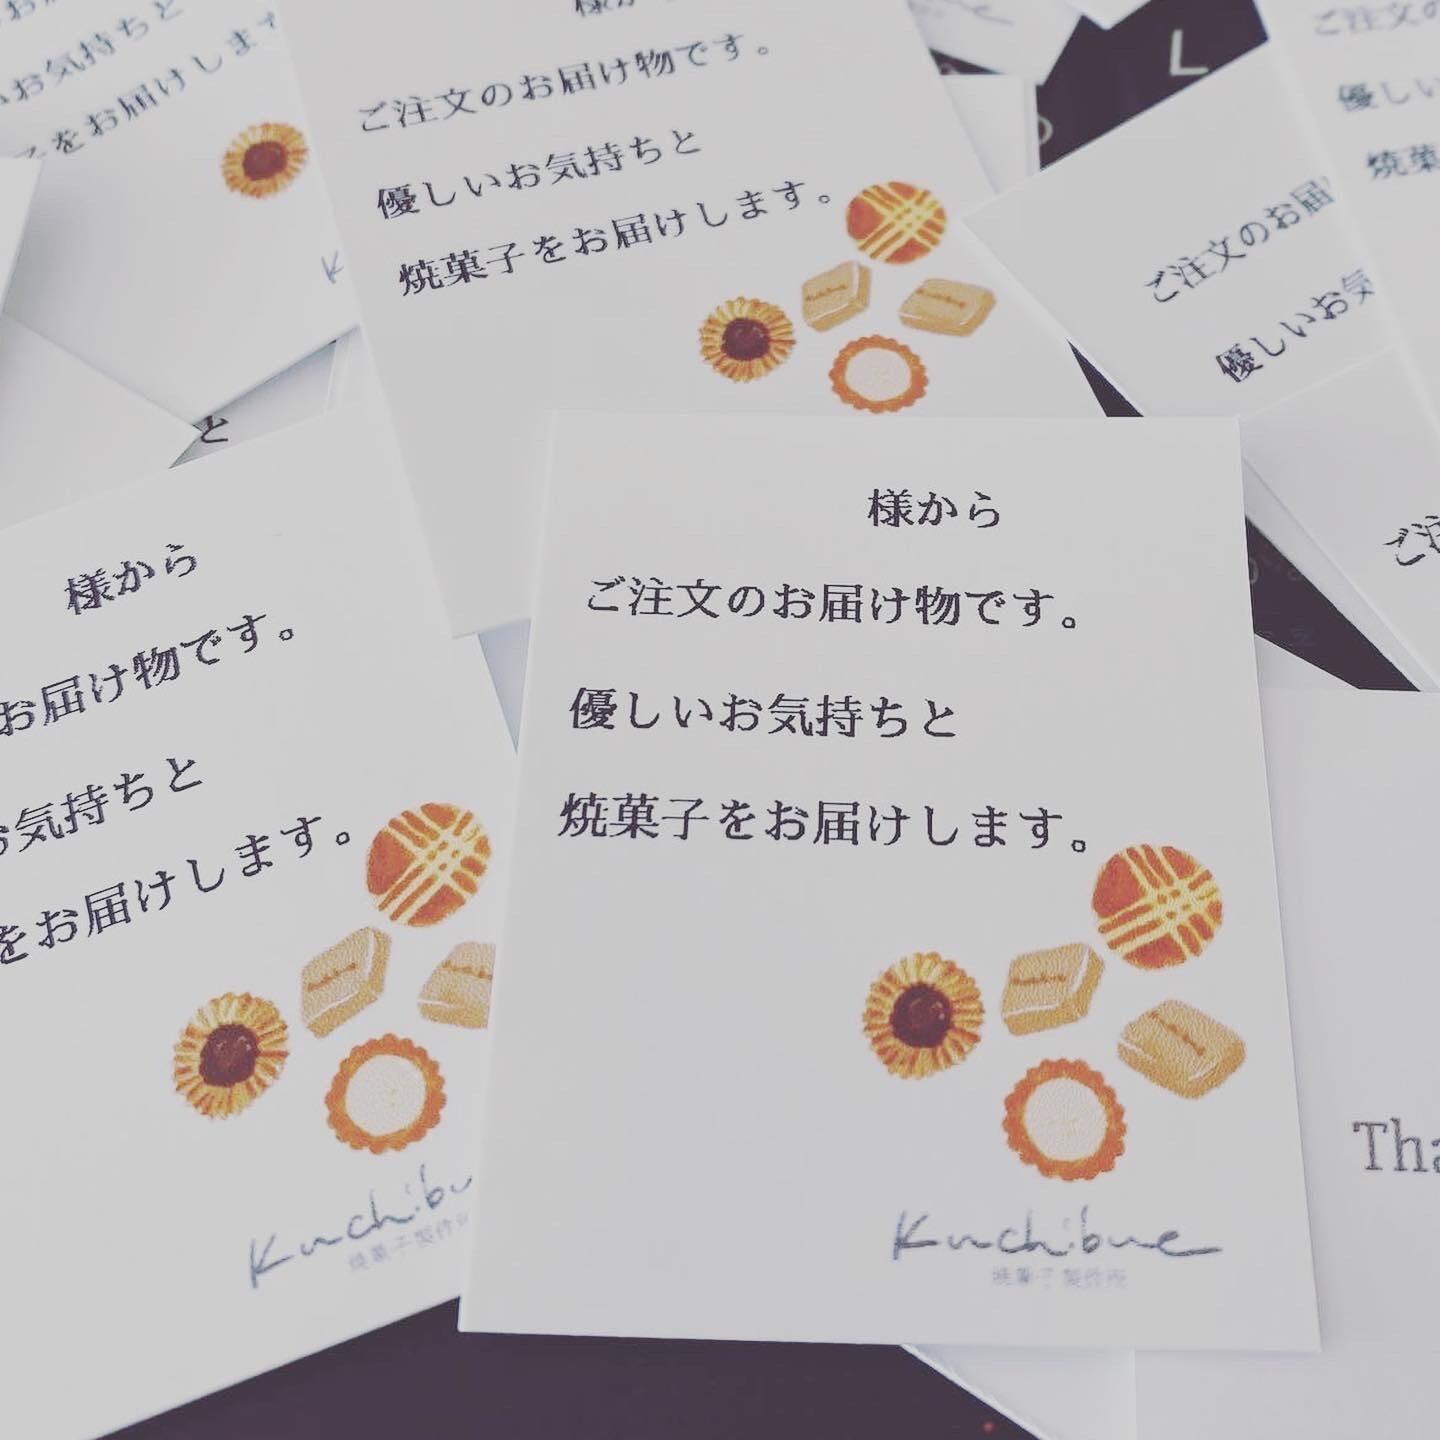 お気持ちと
をお届けします
様か
ご注文のお届け物です。
優しいお気持ちと
焼菓子をお届けします。
L
ご注文の
優しい
焼菓
ご注文のお届
優しいお気
と
ご注
様から
お届け物です。
お気持ちと
をお届けします。
Kuchibu
焼菓子製作
様から
ご注文のお届け物です。
優しいお気持ちと
焼菓子をお届けします。
Kuchibue
焼菓子製作所
Tha